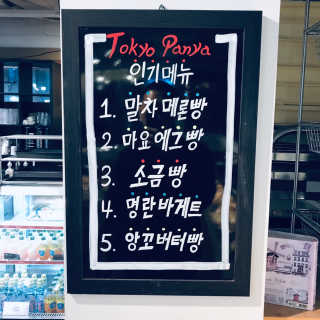 Tokyo Panya
인기메뉴
1. 말차 메론빵
2. 마요에그빵
3. 소금빵
4. 명란바게트
5. 앙꼬버터빵